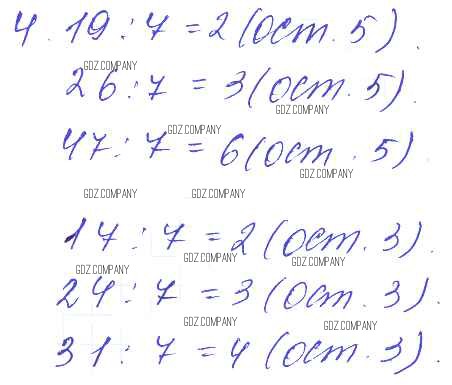 4. 19 : 7 = 2 (ост. 5).
GDZ.COMPANY
26 : 7 = 3 (ост. 5).
GDZ.COMPANY
GDZ.COMPANY
47 : 7 = 6 (ост. 5).
GDZ.COMPANY
GDZ.COMPANY GDZ.COMPANY
17 : 7 = 2 (ост. 3).
GDZ.COMPANY GDZ.COMPANY
GDZ.COMPANY
24 : 7 = 3 (ост. 3).
GDZ.COMPANY GDZ.COMPANY
31 : 7 = 4 (ост. 3).